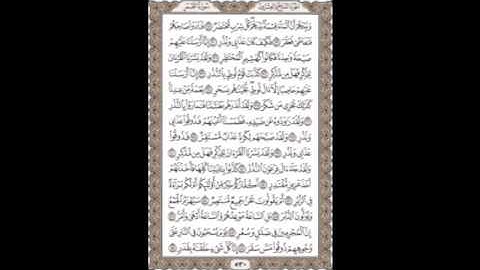 الجزء السابع والعشرون سورة القمر
وَنَبِّئْهُمْ أَنَّ الْمَاءَ قِسْمَةٌ بَيْنَهُمْ كُلُّ شِرْبٍ مُحْتَضَرٌ ۝٢٨ فَنَادَوْا صَاحِبَهُمْ
فَتَعَاطَىٰ فَعَقَرَ ۝٢٩ فَكَيْفَ كَانَ عَذَابِي وَنُذُرِ ۝٣٠ إِنَّا أَرْسَلْنَا عَلَيْهِمْ
صَيْحَةً وَاحِدَةً فَكَانُوا كَهَشِيمِ الْمُحْتَظِرِ ۝٣١ وَلَقَدْ يَسَّرْنَا الْقُرْآنَ
لِلذِّكْرِ فَهَلْ مِنْ مُدَّكِرٍ ۝٣٢ كَذَّبَتْ قَوْمُ لُوطٍ بِالنُّذُرِ ۝٣٣ إِنَّا أَرْسَلْنَا
عَلَيْهِمْ حَاصِبًا إِلَّا آلَ لُوطٍ نَجَّيْنَاهُمْ بِسَحَرٍ ۝٣٤ نِعْمَةً مِنْ عِنْدِنَا
كَذَٰلِكَ نَجْزِي مَنْ شَكَرَ ۝٣٥ وَلَقَدْ أَنْذَرَهُمْ بَطْشَتَنَا فَتَمَارَوْا بِالنُّذُرِ
۝٣٦ وَلَقَدْ رَاوَدُوهُ عَنْ ضَيْفِهِ فَطَمَسْنَا أَعْيُنَهُمْ فَذُوقُوا عَذَابِي
وَنُذُرِ ۝٣٧ وَلَقَدْ صَبَّحَهُمْ بُكْرَةً عَذَابٌ مُسْتَقِرٌّ ۝٣٨ فَذُوقُوا
عَذَابِي وَنُذُرِ ۝٣٩ وَلَقَدْ يَسَّرْنَا الْقُرْآنَ لِلذِّكْرِ فَهَلْ مِنْ مُدَّكِرٍ ۝٤٠
وَلَقَدْ جَاءَ آلَ فِرْعَوْنَ النُّذُرُ ۝٤١ كَذَّبُوا بِآيَاتِنَا كُلِّهَا فَأَخَذْنَاهُمْ
أَخْذَ عَزِيزٍ مُقْتَدِرٍ ۝٤٢ أَكُفَّارُكُمْ خَيْرٌ مِنْ أُولَٰئِكُمْ أَمْ لَكُمْ بَرَاءَةٌ
فِي الزُّبُرِ ۝٤٣ أَمْ يَقُولُونَ نَحْنُ جَمِيعٌ مُنْتَصِرٌ ۝٤٤ سَيُهْزَمُ الْجَمْعُ
وَيُوَلُّونَ الدُّبُرَ ۝٤٥ بَلِ السَّاعَةُ مَوْعِدُهُمْ وَالسَّاعَةُ أَدْهَىٰ وَأَمَرُّ ۝٤٦
إِنَّ الْمُجْرِمِينَ فِي ضَلَالٍ وَسُعُرٍ ۝٤٧ يَوْمَ يُسْحَبُونَ فِي النَّارِ عَلَىٰ
وُجُوهِهِمْ ذُوقُوا مَسَّ سَقَرَ ۝٤٨ إِنَّا كُلَّ شَيْءٍ خَلَقْنَاهُ بِقَدَرٍ ۝٤٩
٥٣٠